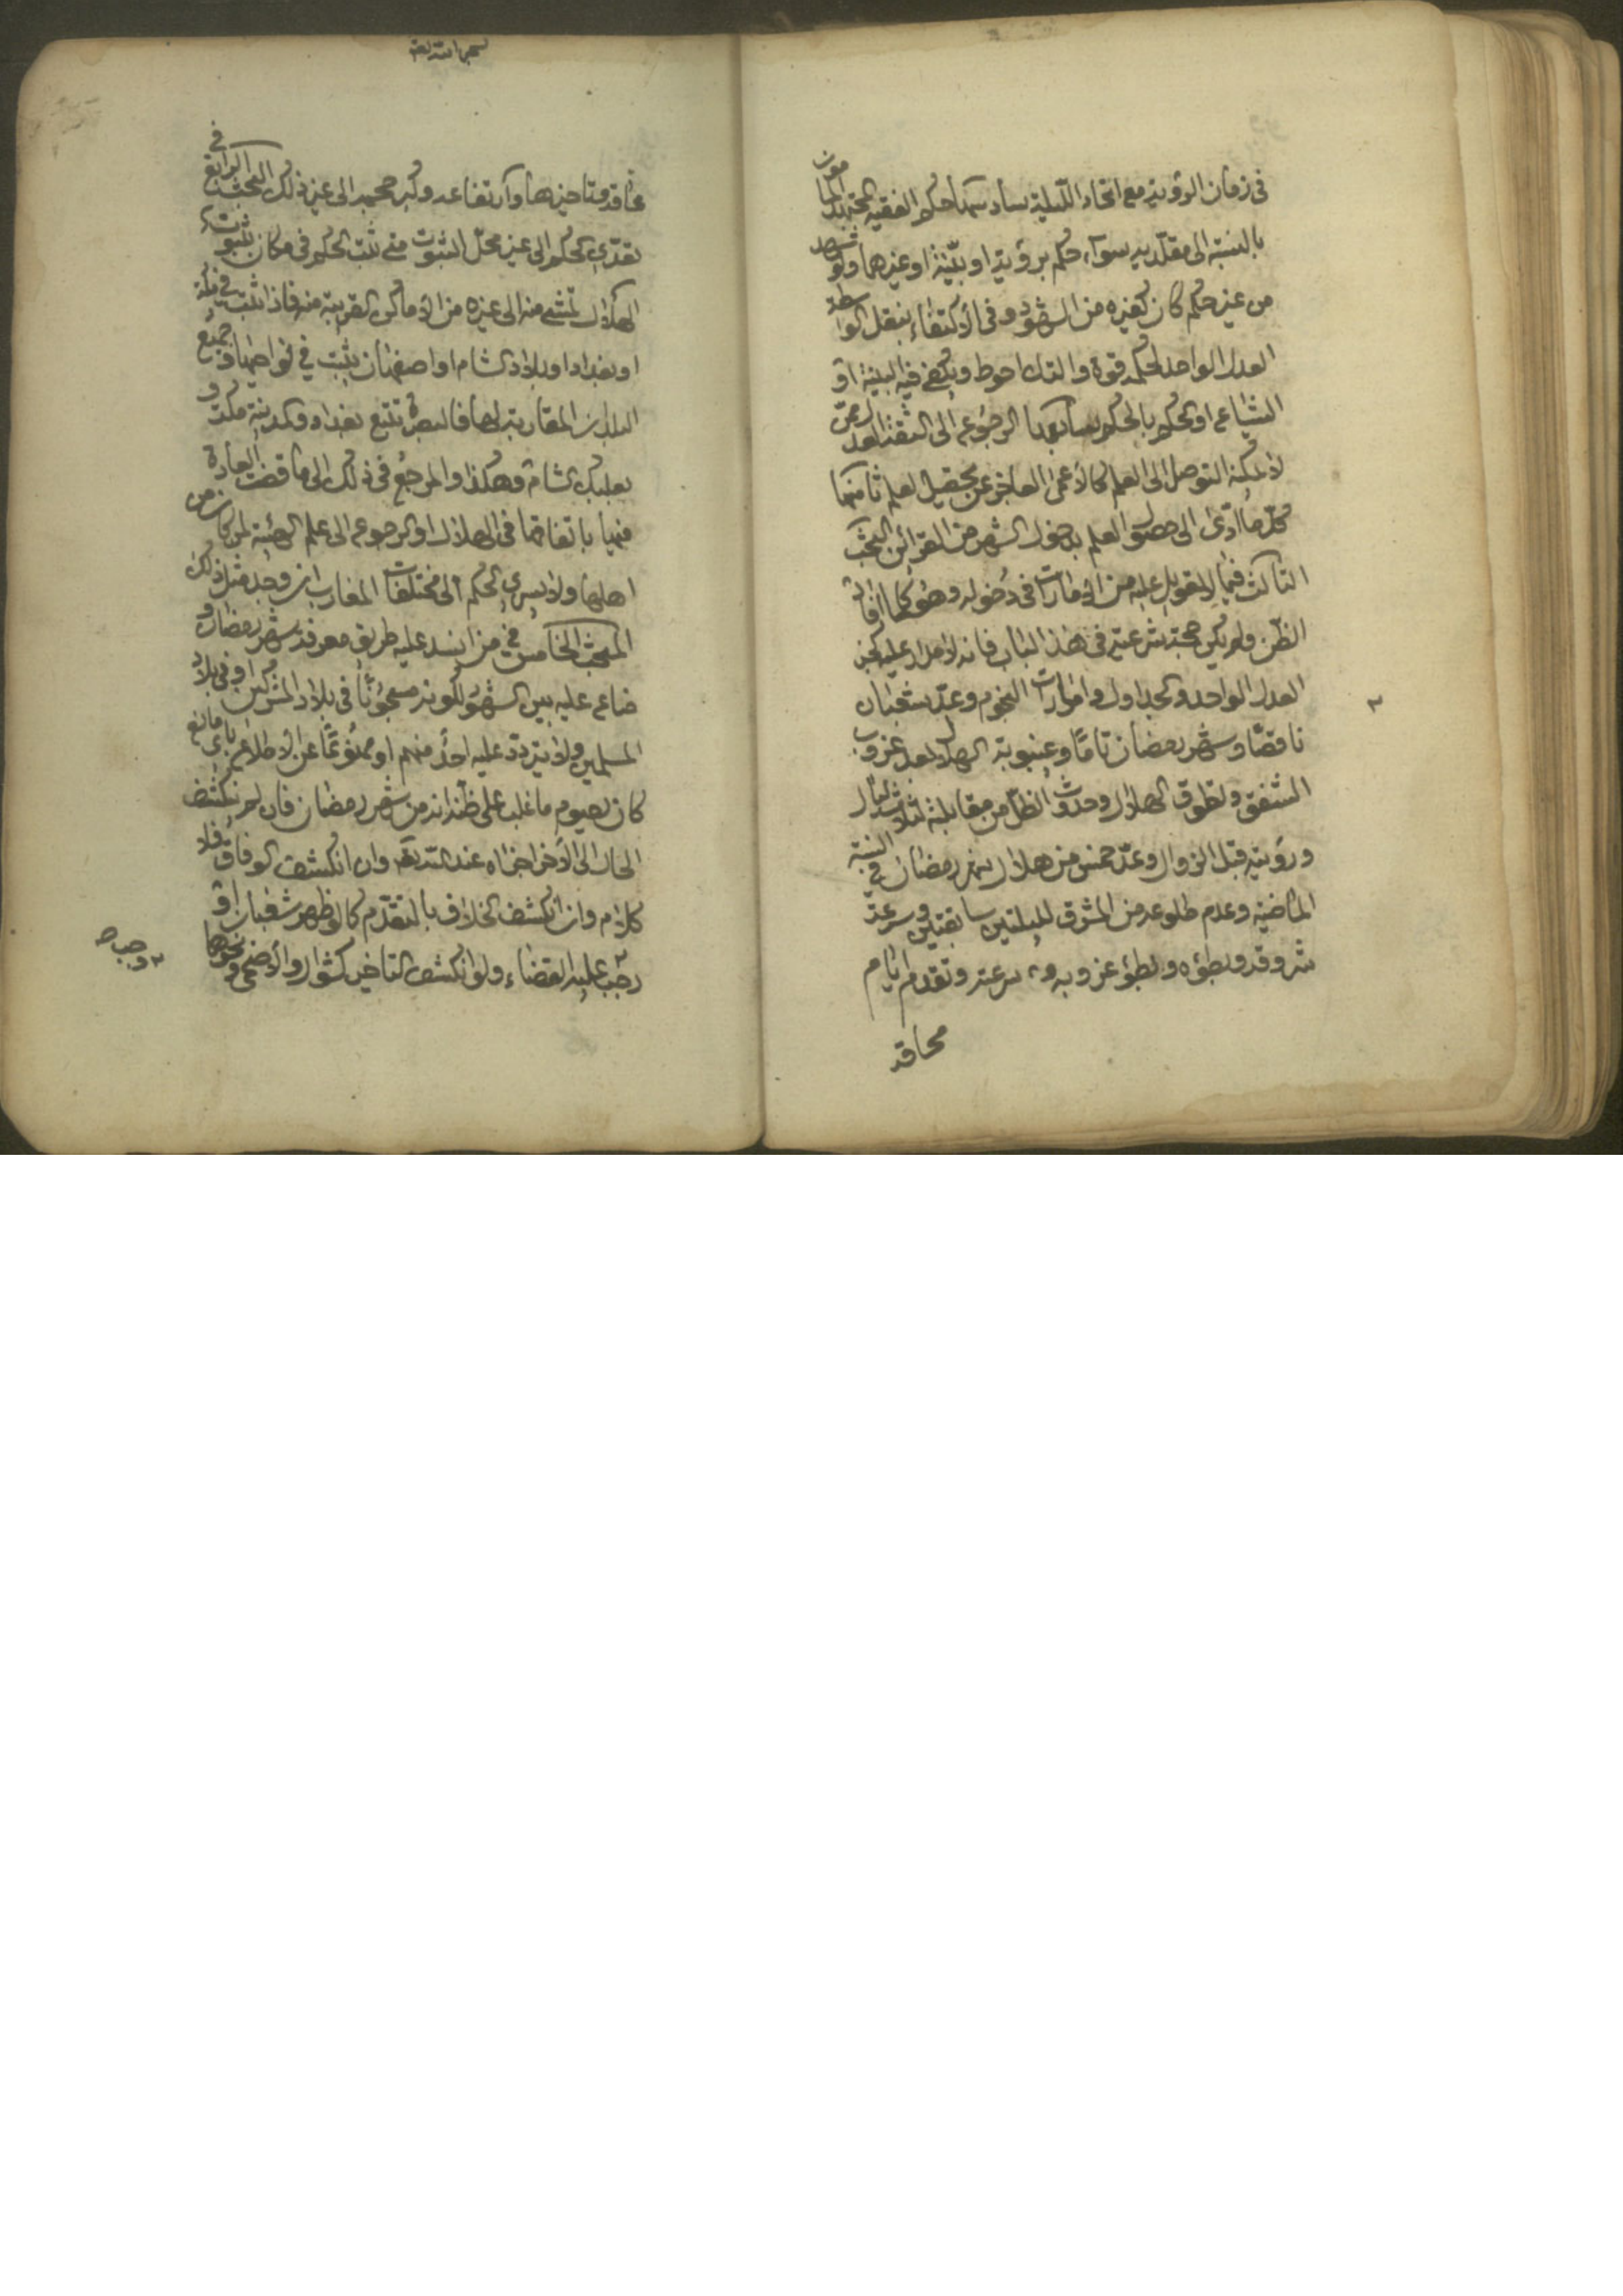 في زمان الرؤية مع اتحاد الليلة سادسها حكم الفقيه المجتهد المأمون
بالنسبة الى مقلديه سوآء حكم برؤية او بيّنة او غيرهما ولو شهد
من غير حكم كان كغيره من الشهود وفي الأكتفاء بنقل الواسطة
العدل الواحد لحكمه قوة والترك احوط ويكفي فيه البينة او
الشياع او الحكم بالحكم سابعها الرجوع الى الثقة العدل ممن
لا يمكنه التوصل الى العلم كالأعمى العاجز عن تحصيل العلم ثامنها
كلّ ما ادّى الى حصول العلم بدخول الشهر من القرائن البحث
الثالث فيما لا تعويل عليه من الأمارات في دخوله وهو كلما افاد
الظن ولم يكن حجة شرعية في هذا الباب فانه لا مدار عليه كخبر
العدل الواحد والجداول وامارات النجوم وعدّ شعبان
ناقصًا وشهر رمضان تامًا وغيبوبة الهلال بعد غروب
الشفق وتطوق الهلال وحدوث الظل من مقابلة لثلاث ليال
ورؤيته قبل الزوال وعدّ خمس من هلال شهر رمضان في السنة
الماضية وعدم طلوعه من المشرق لليلتين سابقتين وسرعة
شروقه وبطؤه وبطؤ غروبه و سرعته وتقدم ايام
محاقه
محاقه وتاخيرها وارتفاعه وكبر حجمه الى غير ذلك البحث الرابع في
تعدّي الحكم الى غير محل الثبوت متى ثبت الحكم في مكان بثبوت
الهلال تمشى منه الى غيره من الأماكن القريبة منه فاذا ثبت في مكة
او بغداد او بلاد الشام او اصفهان يثبت في نواحيها وجميع
البلدان المقاربة لها فالبصرة تتبع بغداد والمدينة مكة و
بعلبك الشام وهكذا والمرجع في ذلك الى ما قضت العادة
فيها باتفاقها في الهلال او الرجوع الى علم الهيئة لمن كان من
اهلها ولا يسري الحكم الى مختلفات المغارب ان وجد مثل ذلك
المبحث الخامس في من انسد عليه طريق معرفة شهر رمضان و
ضاع عليه بين الشهور لكونه مسجونًا في بلاد المشركين او في بلاد
المسلمين ولا يتردد عليه احدٌ منهم او ممنوعًا عن الأطلاع باي مانع
كان يصوم ما غلب على ظنه انه من شهر رمضان فان لم ينكشف
الحال الى الآخر اجزاه عند الله تعالى وان انكشف الوفاق فلا
كلام وان انكشف الخلاف بالتقدم كما لو ظهر شعبان او
رجب عليه القضاء ولو انكشف التاخير كشوال والأضحى ونحوها
وجب صح